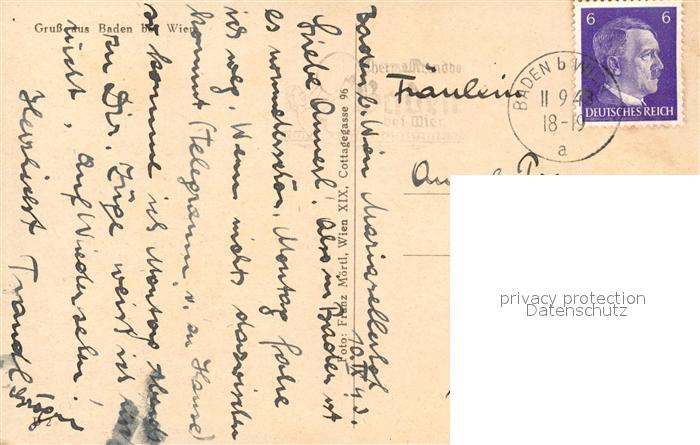 Gruß aus Baden bei Wien
Baden b. Wien Mariazellerhof
10. IX. 43.
Liebe Annerl! Also in Baden ist
es wunderschön. Montag fahre
ich weg. Wenn nichts dazwischen
kommt (Telegramm v. zu Hause)
so komme ich Montag abend
zu Dir. Züge weiß ich
nicht. Auf Wiedersehn!
Herzlichst Trandl
Foto: Franz Mörtl, Wien XIX, Cottagegasse 96
Baden
bei Wien
Fräulein
6 6
DEUTSCHES REICH
BADEN b WIEN
11 9 43
18-19
a
privacy protection
Datenschutz